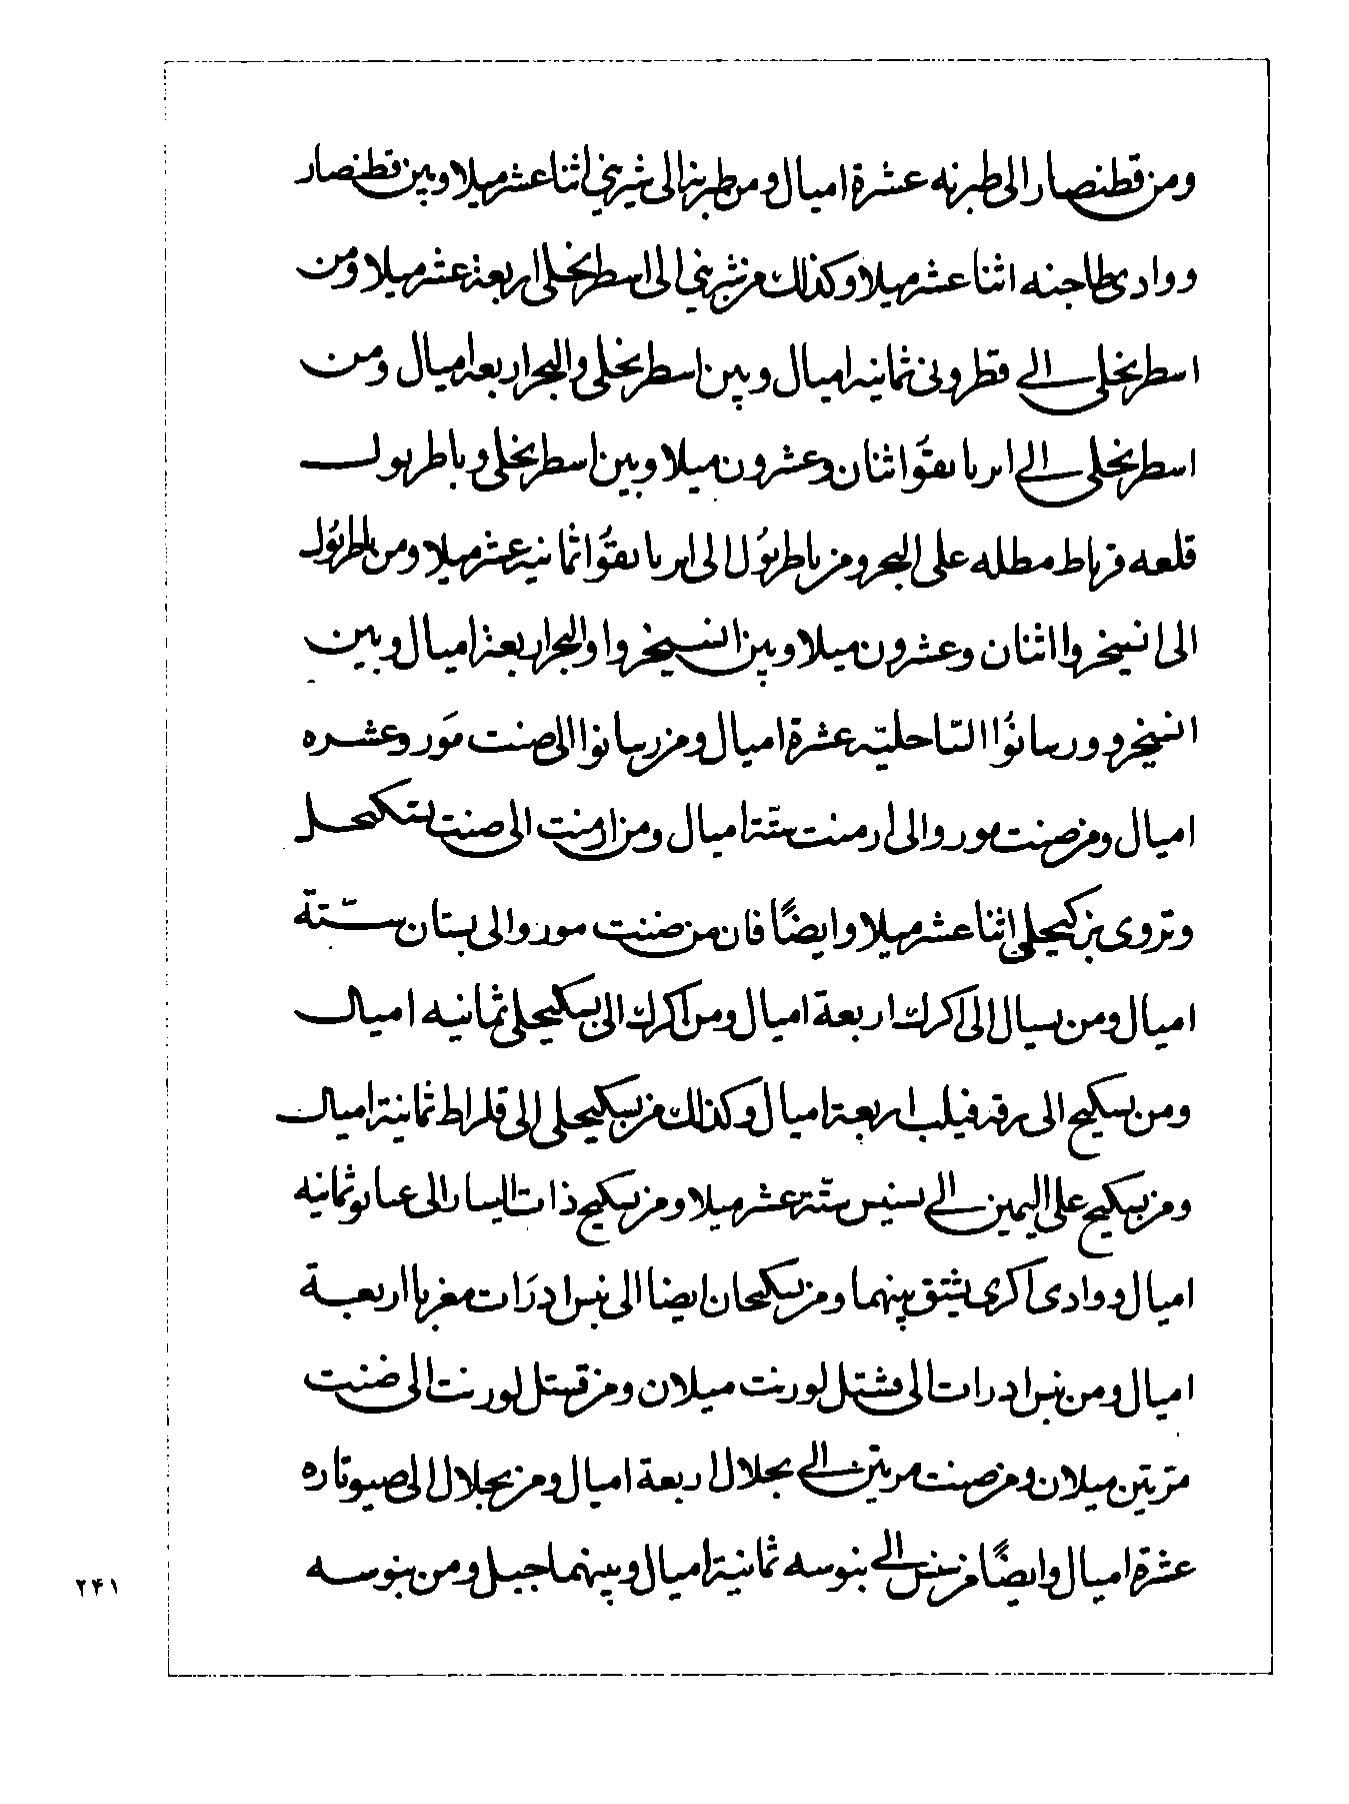 ومن قطنصار الى طبرنه عشرة اميال ومن طبرنا الى شيريني اثنا عشر ميلا وبين قطنصار
ووادى طاجنه اثنا عشر ميلا وكذلك من شيريني الى اسطرنجلى اربعة عشر ميلا ومن
اسطرنجلى الى قطرونى ثمانيه اميال وبين اسطرنجلى والبحر اربعة اميال ومن
اسطرنجلى الى ابرياتقوا اثنان وعشرون ميلا وبين اسطرنجلى وباطربول
قلعه قرباط مطله على البحر ومن باطربول الى ابرياتقوا ثمانية عشر ميلا ومن باطربول
الى انسيخروا اثنان وعشرون ميلا وبين انسيخروا والبحر اربعة اميال وبين
انسيخرو ورسانوا الساحليه عشرة اميال ومن رسانوا الى صنت مورو عشره
اميال ومن صنت مورو الى ارمنت ستة اميال ومن ارمنت الى صنت
وتروى اثنا عشر ميلا وايضًا فان من صنت مورو الى ستة
اميال ومن الى اكرك اربعة اميال ومن اكرك الى بسكيحلى ثمانيه اميال
ومن بسكيح الى برقه فيلب اربعة اميال وكذلك من بسكيحلى الى قلراط ثمانية اميال
ومن بسكيح على اليمين الى ستة عشر ميلا ومن بسكيح ذات اليسار الى ثمانيه
اميال ووادى اكرى يشق بينهما ومن ايضا الى مغربا اربعة
اميال ومن الى قشتل لورنت ميلان ومن قستل لورنت الى ضنت
مرتين ميلان ومن صنت مرتين الى بجلال اربعة اميال ومن بجلال الى صيوتاره
عشرة اميال وايضًا من الى بنوسه ثمانية اميال وبينهما جبل ومن بنوسه
٢۴١